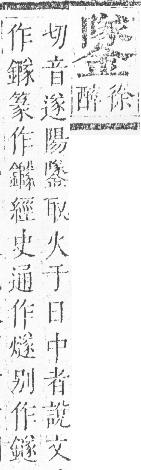 鐆
徐
醉
切音遂陽鐆取火于日中者說文
作鐩篆作經史通作燧别作鐩